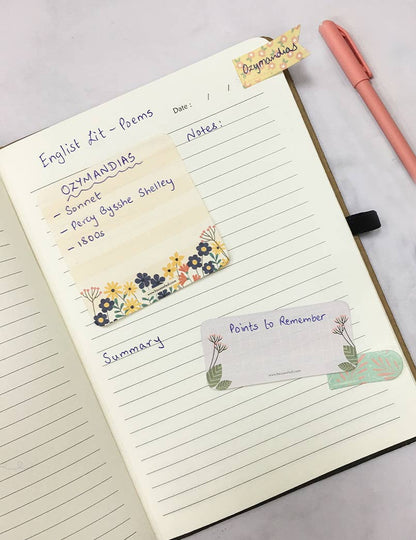 Ozymandias
Date: / /
Englist Lit - Poems
Notes:
OZYMANDIAS
- Sonnet
- Percy Bysshe Shelley
- 1800s
Points to Remember
Summary